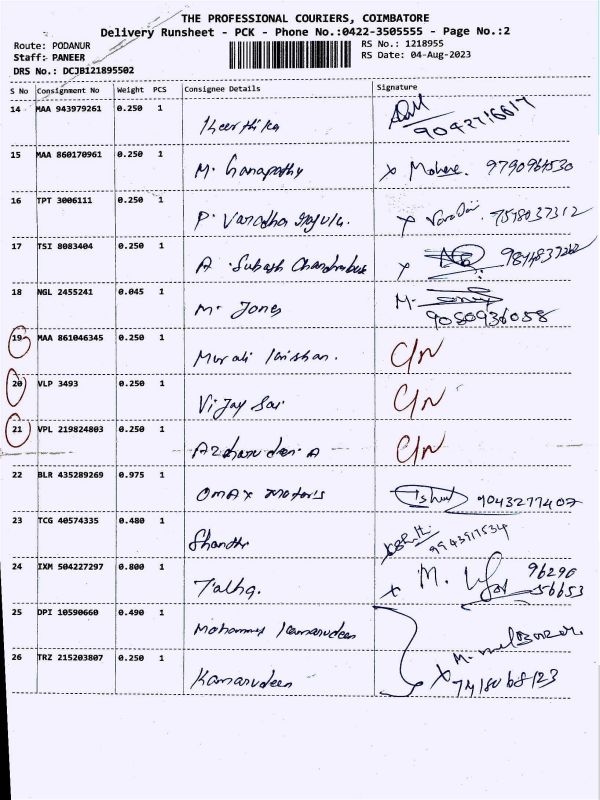 THE PROFESSIONAL COURIERS, COIMBATORE
Delivery Runsheet - PCK - Phone No.:0422-3505555 - Page No.:2
Route: PODANUR RS No.: 1218955
Staff: PANEER RS Date: 04-Aug-2023
DRS No.: DCJB121895502
S No Consignment No Weight PCS Consignee Details Signature
14 MAA 943979261 0.250 1
15 MAA 860170961 0.250 1 M. Ganapathy X
16 TPT 3006111 0.250 1 P. X 7548037312
17 TSI 8083404 0.250 1 A. Subash X
18 NGL 2455241 0.045 1 M. Jones M.
9080936058
19 MAA 861046345 0.250 1 Murali C/N
20 VLP 3493 0.250 1 Vijay Sai C/N
21 VPL 219824803 0.250 1 C/N
22 BLR 435289269 0.975 1 OMAX Motors 9043277407
23 TCG 40574335 0.480 1 9943917534
24 IXM 504227297 0.800 1 Talha. X M. 96290
56653
25 DPI 10590660 0.490 1 Kamarudeen M.
26 TRZ 215203807 0.250 1 Kamarudeen X